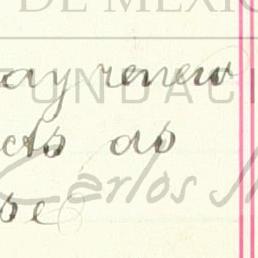 DE MÉXICO
ay renew
FUNDACI
cts as
Carlos
se